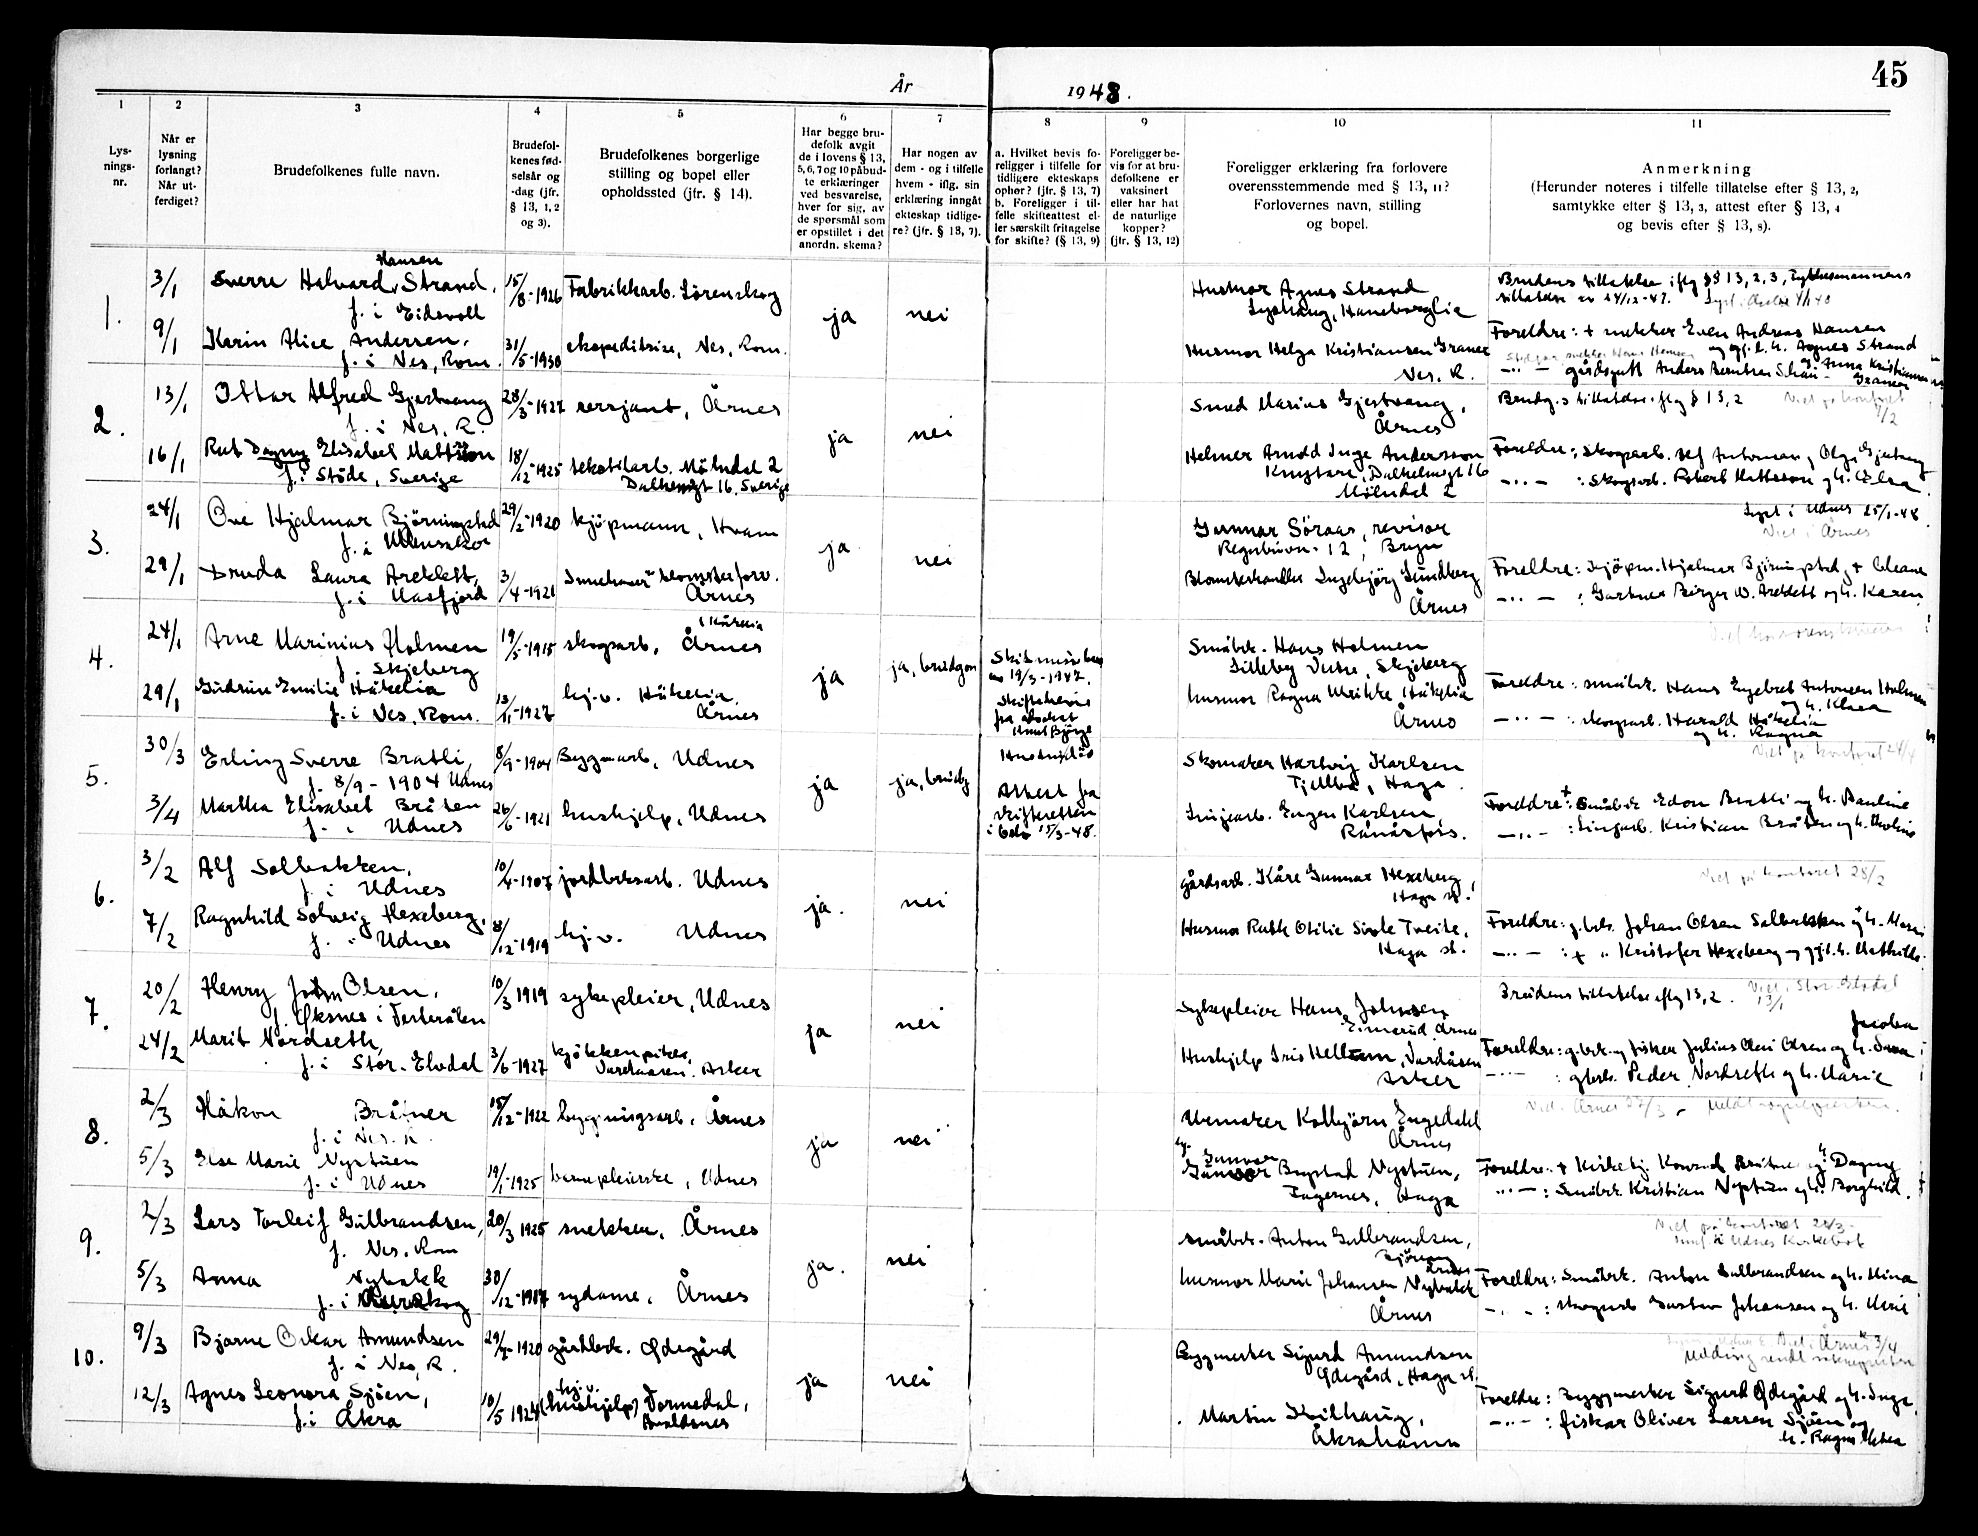 45
År
1948.
1
2
3
4
5
6
7
8
9
10
11
Lys-
nings-
nr.
Når er
lysning
forlangt?
Når ut-
ferdiget?
Brudefolkenes fulle navn.
Brudefol-
kenes fød-
selsår og
-dag (jfr.
§ 13, 1, 2
og 3).
Brudefolkenes borgerlige
stilling og bopel eller
opholdssted (jfr. § 14).
Har begge bru-
defolk avgit
de i lovens § 13,
5, 6, 7 og 10 påbud-
te erklæringer
ved besvarelse,
hver for sig, av
de spørsmål som
er opstillet i det
anordn. skema?
Har nogen av
dem - og i tilfelle
hvem - iflg. sin
erklæring inngåt
ekteskap tidlige-
re? (jfr. § 13, 7).
a. Hvilket bevis fo-
religger i tilfelle for
tidligere ekteskaps
ophør? (jfr. § 13, 7)
b. Foreligger i til-
felle skifteattest el-
ler særskilt fritagelse
for skifte? (§ 13, 9)
Foreligger be-
vis for at bru-
defolkene er
vaksinert
eller har hat
de naturlige
kopper?
(jfr. § 13, 12)
Foreligger erklæring fra forlovere
overensstemmende med § 13, 11?
Forlovernes navn, stilling
og bopel.
Anmerkning
(Herunder noteres i tilfelle tillatelse efter § 13, 2,
samtykke efter § 13, 3, attest efter § 13, 4
og bevis efter § 13, 8).
1.
3/1
Hansen
Sverre Halvard Strand,
f. i Eidsvoll
15/8-1926
Fabrikkarb. Lørenskog
9/1
Karin Alice Andersen,
f. i Nes, Rom.
31/5-1930
ekspeditrise, Nes, Rom.
ja
nei
Husmor Agnes Strand
Husmor Helga Kristiansen Graner
Nes. R.
Brudens tillatelse iflg §§ 13, 2, 3, Fylkesmannens
tillatelse av 24/12-47.
Foreldre: + snekker Even Andreas Hansen
og gjl. h. Agnes Strand
2.
13/1
Ottar Alfred Gjestvang
f. i Nes, R.
28/3-1927
sersjant, Årnes
16/1
Rut Dagny Elisabet Mattsson
f. i Stöde, Sverige
18/12-1925
tekstilarb. Mölndal 2
16, Sverige
ja
nei
Smed Marius Gjestvang,
Årnes
Helmer Arnold Inge Andersson
16
Mölndal 2
Brudg.s tillatelse iflg § 13, 2
Viet på kontoret
/2
Foreldre: Skogsarb. Alf Antonsen og Olga Gjestvang
-..- : Skogsarb. Robert Mattsson og h. Elsa.
3.
24/1
Ove Hjalmar Bjørningstad
f. i Ullensaker
29/2-1920
kjøpmann, Hvam
29/1
Druda Laura Areklett,
f. i Masfjord
3/4-1921
Innehaver blomsterforr.
Årnes
ja
nei
Gunnar Söraas, revisor
12, Bryn
Blomsterhandler Ingebjørg Lundberg
Årnes
Lyst i Udnes 25/1-48
Viet i Årnes
Foreldre: kjøpm. Hjalmar Bjørningstad og + Oleane
-..- : Gartner Birger W. Areklett og h. Karen.
4.
24/1
Arne Marinius Holmen
f. Skjeberg
19/5-1915
skogsarb., Årnes
29/1
Gudrun Emilie Håkelia
f. i Nes, Rom.
13/11-1927
hj.v. Håkelia,
Årnes
ja
ja, brudgom
19/3-1947.
Småbr. Hans Holmen
Lilleby Vestre, Skjeberg
husmor Ragna Ulrikke Håkelia
Årnes
Foreldre: småbr. Hans Engebret Antonsen Holmen
og h. Klara
-..- : skogsarb. Harald Håkelia
og h. Ragna
5.
30/3
Erling Sverre Bratli,
f. 8/9-1904 Udnes
8/9-1904
Byggmarb. Udnes
3/4
Martha Elisabet Bråten
f. i Udnes
26/6-1921
hushjelp, Udnes
ja
ja, brudg
Attest fra
skifteretten
i Oslo 15/3-48.
Skomaker Hartvig Karlsen
Tjellbo, Haga.
Linjearb. Eugen Karlsen,
Rånåsfoss.
Viet på kontoret 24/4
Foreldre: + Småbr. Edon Bratli og h. Pauline
-..- : Linjearb. Kristian Bråten og h.
6.
3/2
Alf Solbakken,
f. i Udnes
10/4-1907
jordbruksarb. Udnes
7/2
Ragnhild Solveig Hexeberg,
f. i Udnes
8/12-1919
hj.v. Udnes
ja.
nei
gårdsarb. Kåre Gunnar Hexeberg,
Haga st.
Husmor Ruth Otilie Sirole Tveite,
Haga st.
Viet på kontoret 28/2
Foreldre: g.br. Johan Olsen Solbakken og h.
-..- : + " Kristofer Hexeberg og gjl. h. Mathilde.
7.
20/2
Henry John Olsen,
f. Øksnes i Vesterålen
10/3 1919
sykepleier, Udnes
24/2
Marit Nordseth,
f. i Stor-Elvdal
3/6-1927
kjøkkenpike,
Vardaasen. Asker
ja
nei
Sykepleier Hans Johnsen
Årnes
Hushjelp Iris Hellum, Vardåsen
Asker
Brudens tillatelse iflg 13, 2.
Viet i Stor-Elvdal
13/1
Foreldre: g.br. og fisker Julius Olai Olsen og h. Jacoba
-..- : gbr. Peder Nordseth og h. Marie
8.
2/3
Håkon Bråtner
f. i Nes. R.
15/12-1922
bygningsarb., Årnes
5/3
Else Marie Nystuen
f. i Udnes
19/1-1925
barnepleierske, Udnes
ja
nei
Urmaker Kolbjørn Engedahl
Årnes
Gunvor Bugstad Nystuen,
Fagernes, Haga
Foreldre: + Kirketj. Konrad Bråtner og h. Dagny
-..- : Småbr. Kristian Nystuen og h. Borghild.
9.
2/3
Lars Torleif Gulbrandsen,
f. Nes, Rom
20/3 1925
snekker, Årnes
5/3
Anna Nybakk
f. i Aurskog
30/12-1917
sydame, Årnes
ja.
nei
Småbr. Anton Gulbrandsen,
Husmor Marie Johansen Nybakk
Årnes
Viet på kontoret 28/3-
Udnes Kirkebok
Foreldre: Småbr. Anton Gulbrandsen og h. Mina
-..- : skogsarb Gustav Johansen og h. Marie
10.
9/3
Bjarne Oskar Amundsen
f. i Nes, R.
29/7-1920
gårdbr. Ødegård
12/3
Agnes Leonora Sjöen,
f. i Åkra
10/5 1924
hj.v.
(hushjelp) Tormodal,
Avaldsnes
ja
nei
Byggmester Sigurd Amundsen
Ødegård, Haga st.
Martin Kvilhaug,
Åkrahamn
Årnes 3/4
Melding sendt
Foreldre: Byggmester Sigurd Ødegård og h. Inga.
-..- : fisker Oliver Larsen Sjöen og
h. Ragna Metea